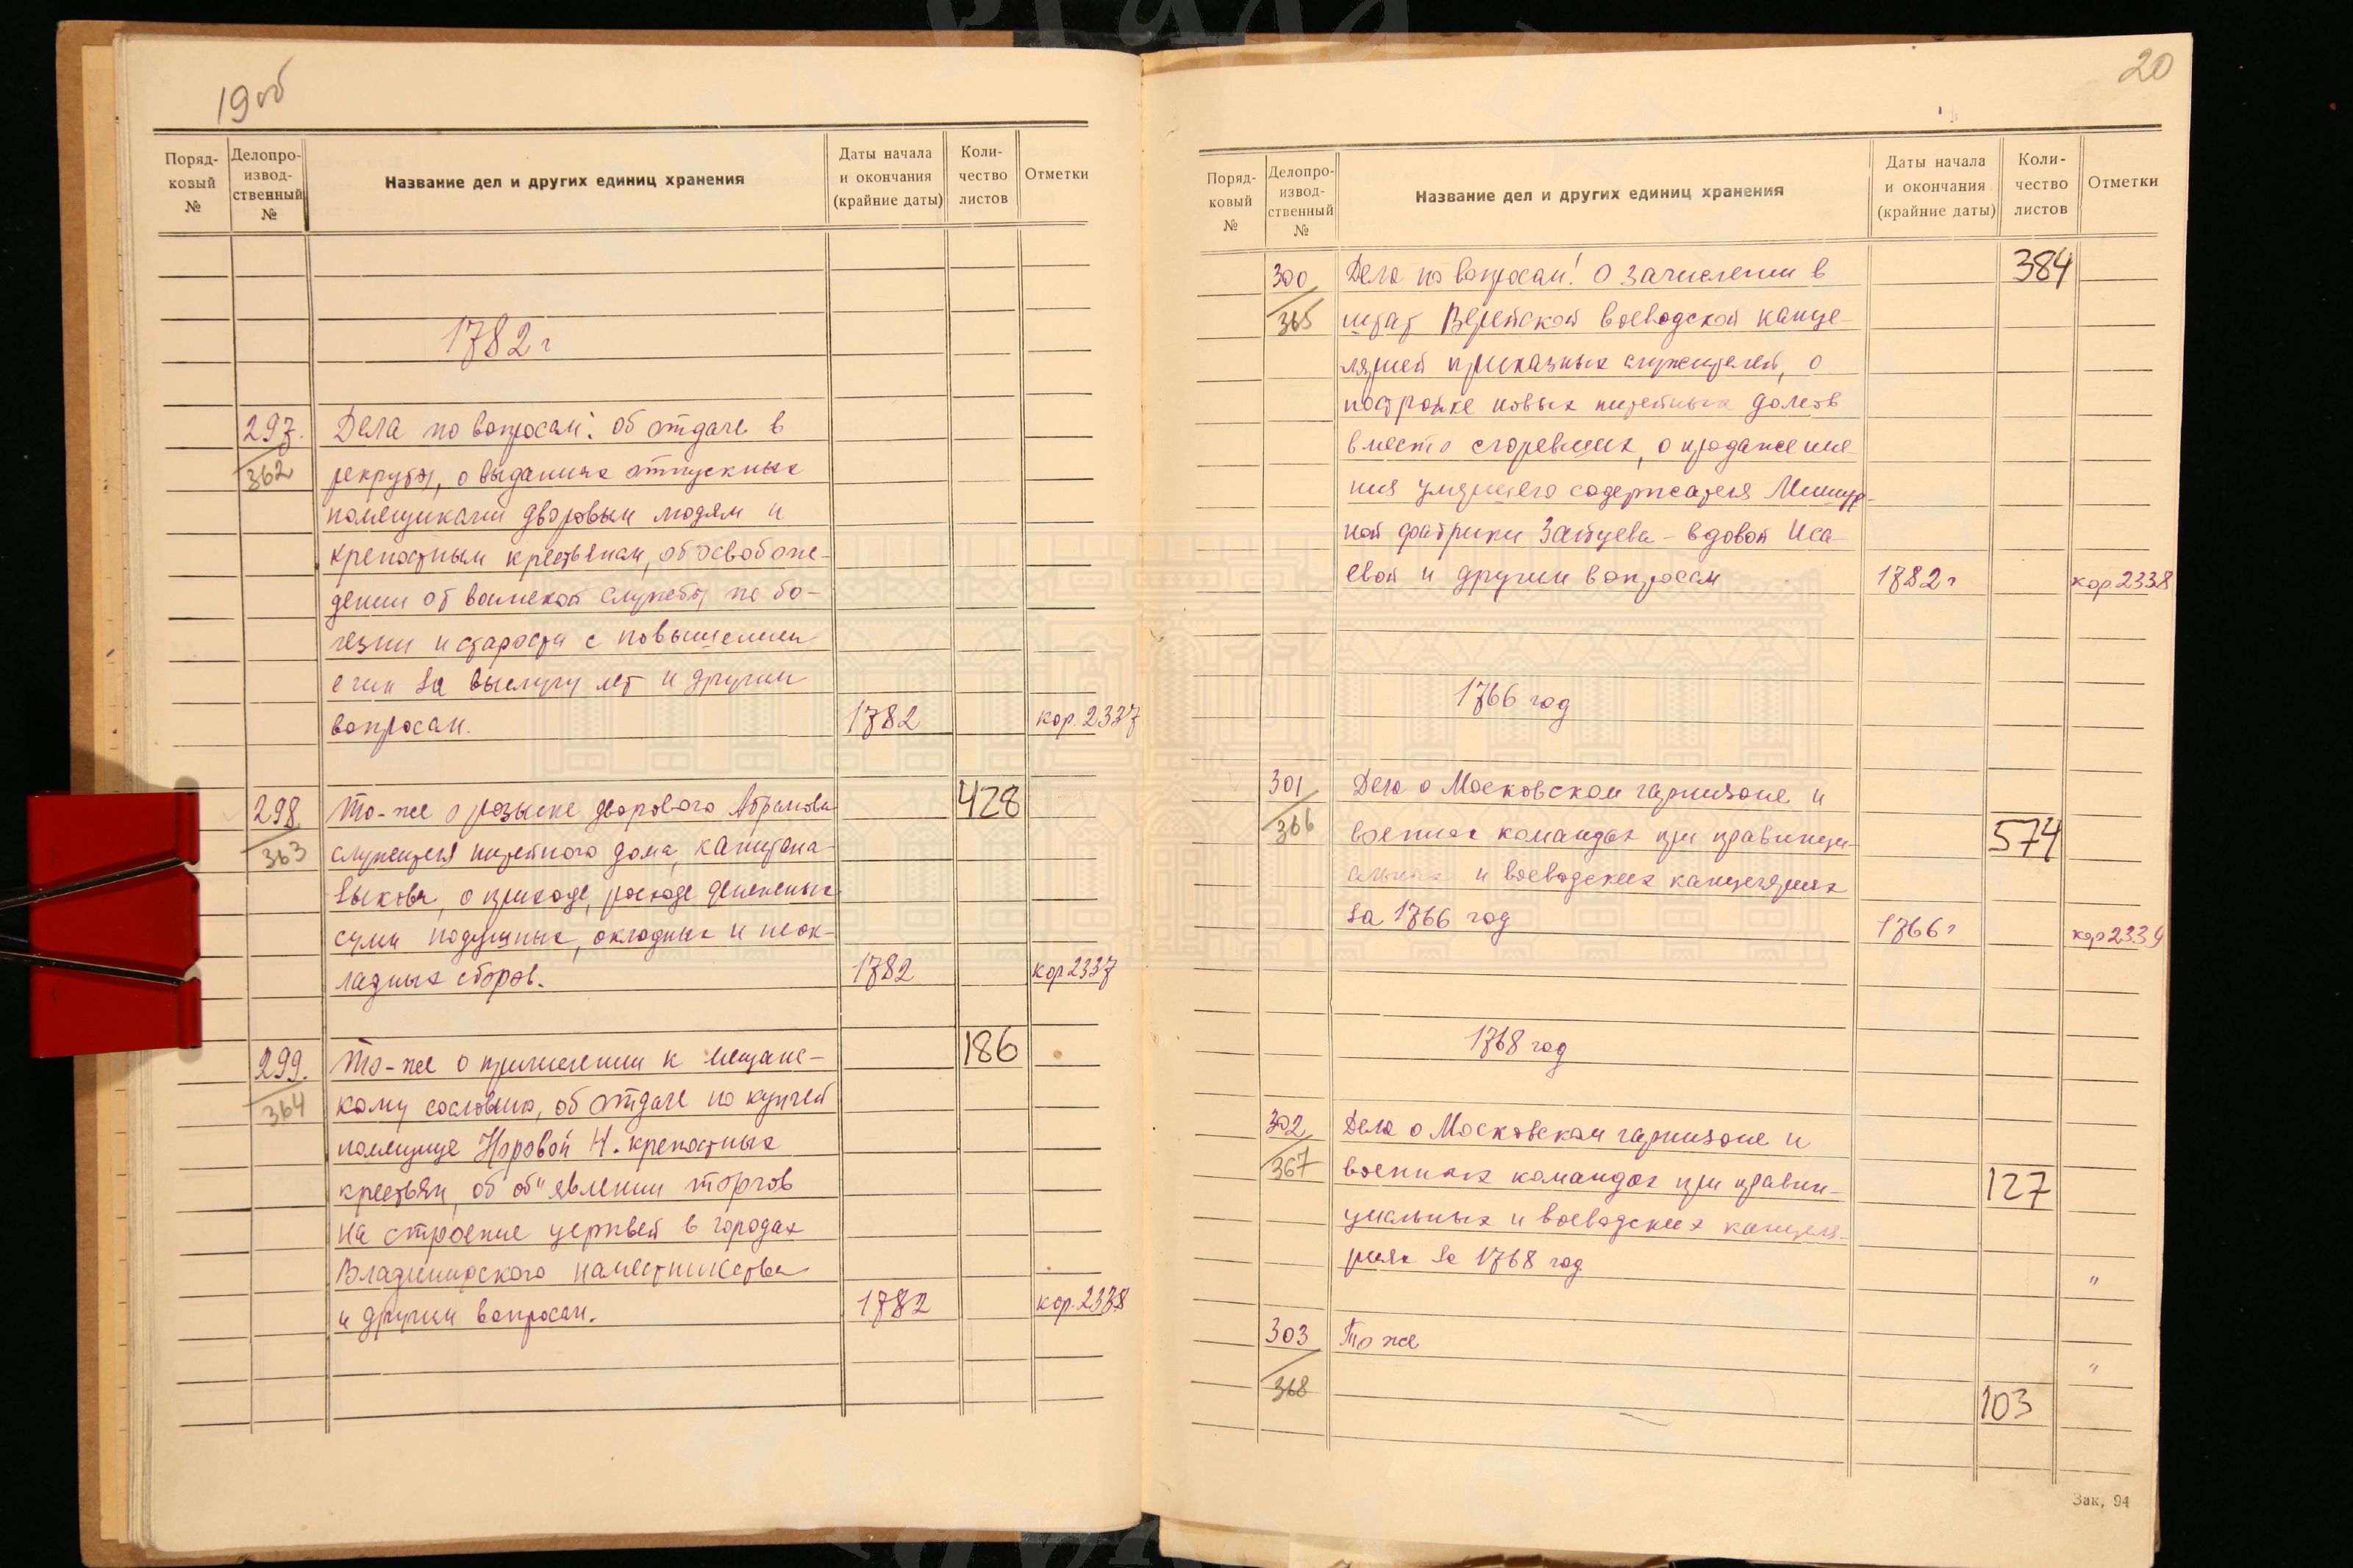 19об
Поряд-
ковый
№
Делопро-
извод-
ственный
№
Название дел и других единиц хранения
Даты начала
и окончания
(крайние даты)
Коли-
чество
листов
Отметки
1782 г
297.
362
Дела по вопросам: об отдаче в
рекруты, о выданных отпускных
помещиками дворовым людям и
крепостным крестьянам, об освобож-
дении от воинской службы по бо-
лезни и старости с повышением
в чин за выслугу лет и другим
вопросам.
1782
кор. 2337
298
363
428
То-же о розыске дворового Абрамова
служителя питейного дома, капитана
Быкова, о приходе, расходе денежных
сумм подушных, окладных и неок-
ладных сборов.
1782
кор 2337
299.
364
186
То-же о причислении к мещанс-
кому сословию, об отдаче по купчей
помещице Норовой Н. крепостных
крестьян, об об"явлении торгов
на строение церквей в городах
Владимирского наместничества
и другим вопросам.
1782
кор. 2338
20
Поряд-
ковый
№
Делопро-
извод-
ственный
№
Название дел и других единиц хранения
Даты начала
и окончания
(крайние даты)
Коли-
чество
листов
Отметки
300
365
384
Дела по вопросам: о зачислении в
штат Верейской воеводской канце-
лярией приказных служителей, о
постройке новых питейных домов
вместо сгоревших, о продаже име-
ния умершего содержателя Мишур-
ной фабрики Зайцева - вдовой Иса-
евой и другим вопросам
1782 г
кор 2338
1766 год
301
366
574
Дела о Московском гарнизоне и
военных командах при правинци-
альных и воеводских канцеляриях
за 1766 год
1766 г
кор 2339
1768 год
302
367
127
Дела о Московском гарнизоне и
военных командах при правин-
циальных и воеводских канцеля-
риях за 1768 год
"
303
368
То же
"
103
Зак. 94